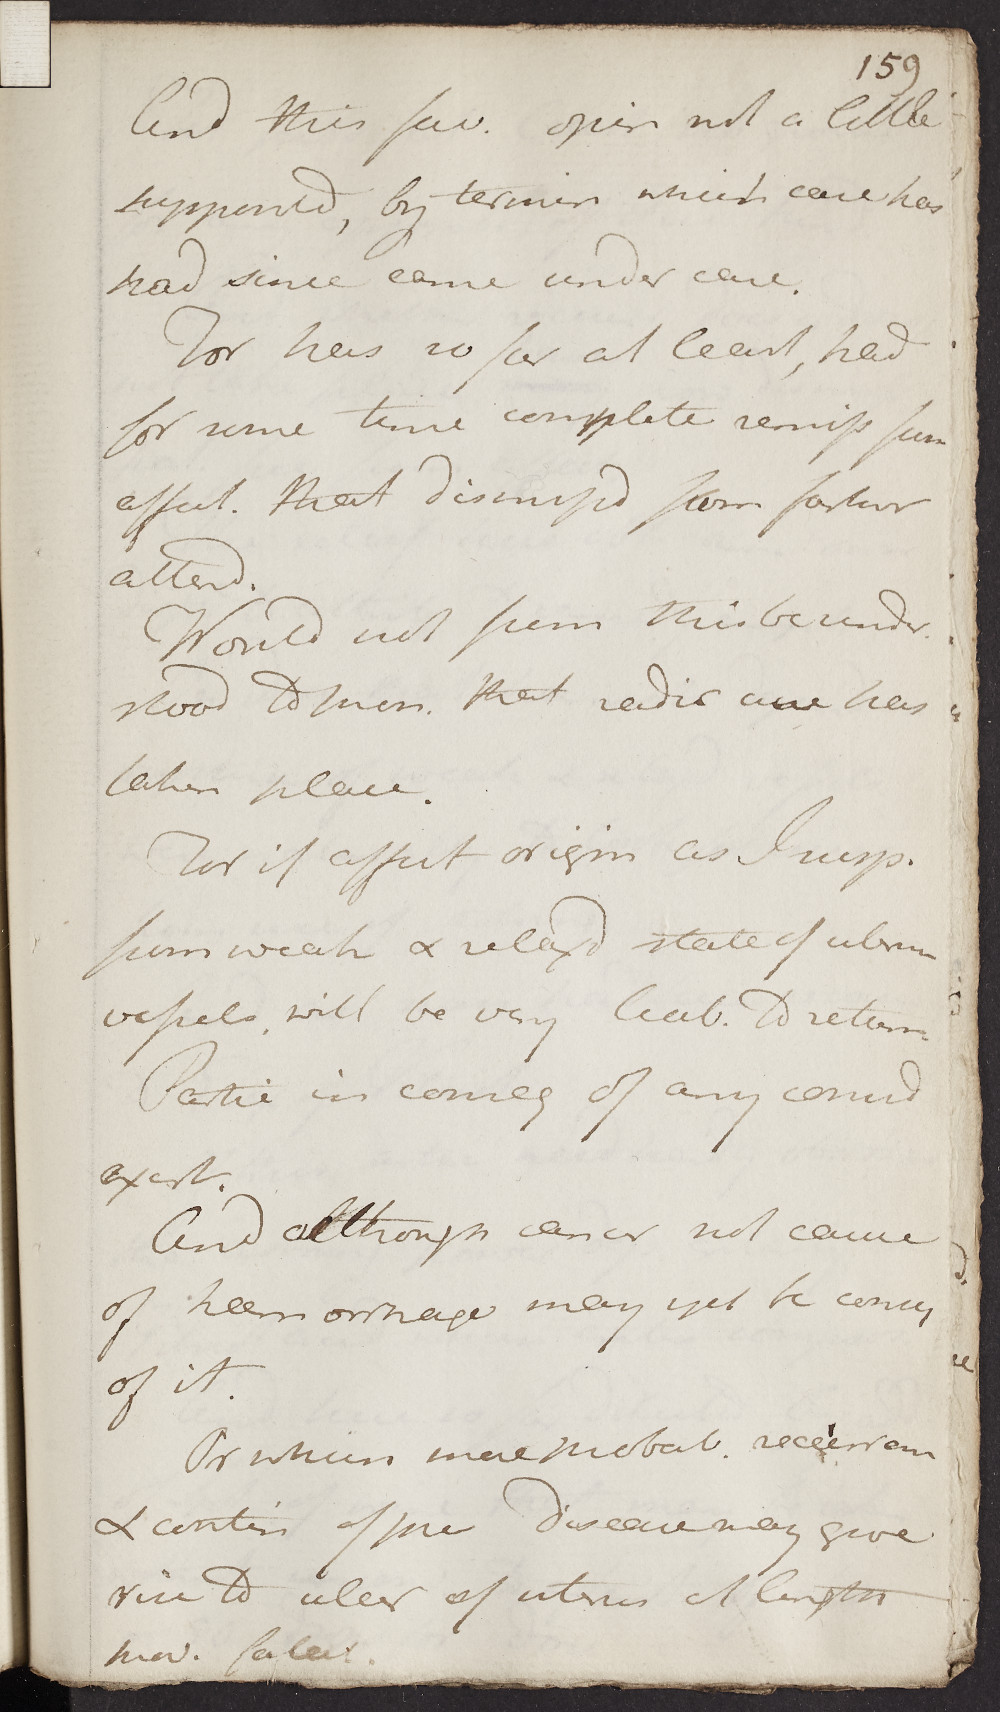 159
And this fav. opin not a little
supported, by termin which case has
had since came under care.
For has so far at least, had
for some time complete remiss from
affect. that dismiss'd from farther
attend.
Would not from this be under
stood to presum. that radic cure has
taken place.
For if affect origin as I susp.
from weak & relax'd state of uterin
vessels, will be very liab. to return
Partic in conseq of any consid
exert.
And although cancer not cause
of heamorrhage may yet be conseq
of it.
Or which more probab. recurren
& contin of pres disease may give
rise to ulcer of uterus at length
prov. fatal.